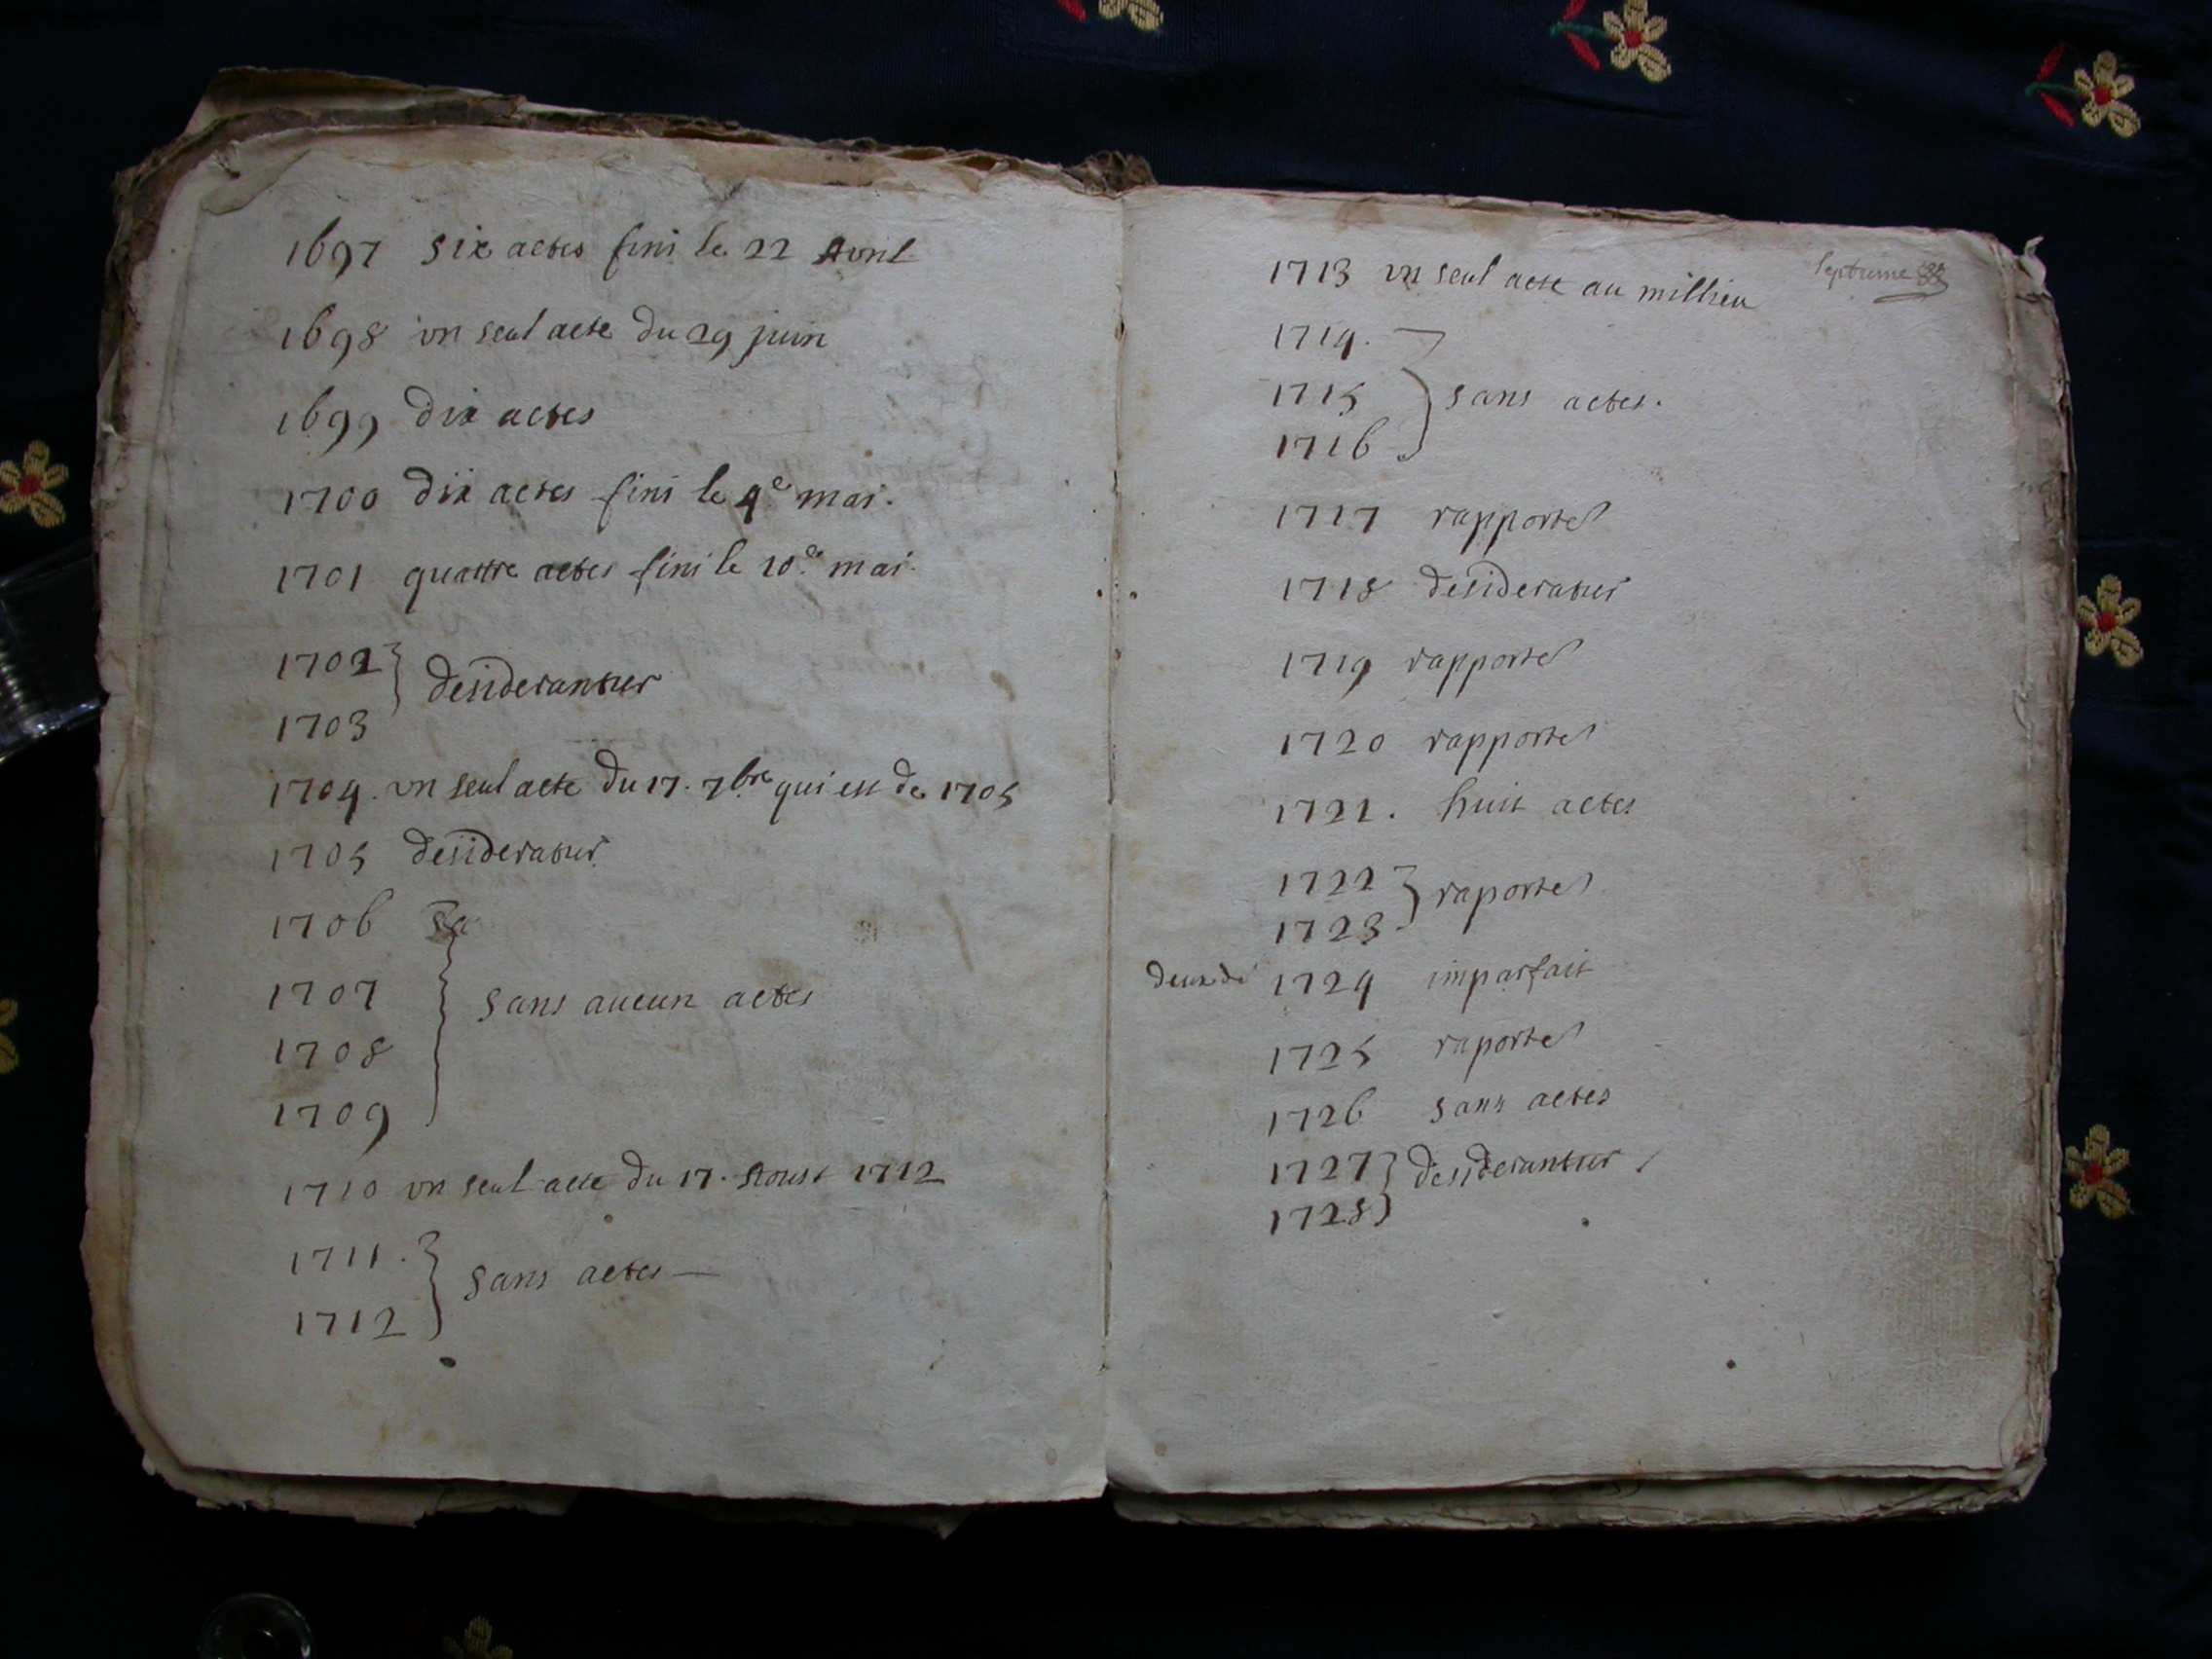 1697 six actes fini le 22 Avril
1698 un seul acte du 29 juin
1699 dix actes
1700 dix actes fini le 4e mai.
1701 quattre actes fini le 10e mai.
1702
desiderantur
1703
1704. un seul acte du 17. 7bre qui est de 1705
1705 desideratur.
1706
1707 sans aucun actes
1708
1709
1710 un seul acte du 17. Aoust 1712
1711.
sans actes
1712
septieme
1713 un seul acte au millieu
1714.
1715 sans actes.
1716
1717 rapporté
1718 desideratur
1719 rapporté
1720 rapporté
1721. huit actes
1722
raporté
1723
1724 imparfait
1725 raporté
1726 sans actes
1727 desiderantur
1728